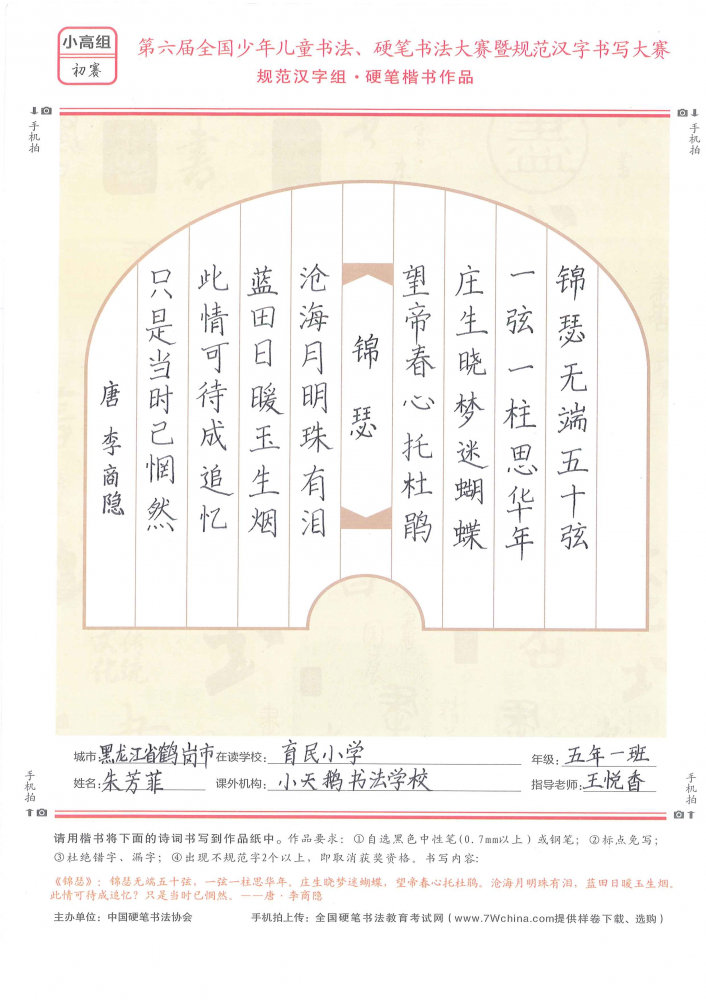 小高组
初赛
第六届全国少年儿童书法、硬笔书法大赛暨规范汉字书写大赛
规范汉字组·硬笔楷书作品
手机拍
手机拍
锦瑟无端五十弦
一弦一柱思华年
庄生晓梦迷蝴蝶
望帝春心托杜鹃
锦瑟
沧海月明珠有泪
蓝田日暖玉生烟
此情可待成追忆
只是当时已惘然
唐 李商隐
城市:黑龙江省鹤岗市 在读学校:育民小学 年级:五年一班
姓名:朱芳菲 课外机构:小天鹅书法学校 指导老师:王悦香
手机拍
手机拍
请用楷书将下面的诗词书写到作品纸中。作品要求:①自选黑色中性笔(0.7mm以上)或钢笔;②标点免写;
③杜绝错字、漏字;④出现不规范字2个以上,即取消获奖资格。书写内容:
《锦瑟》:锦瑟无端五十弦,一弦一柱思华年。庄生晓梦迷蝴蝶,望帝春心托杜鹃。沧海月明珠有泪,蓝田日暖玉生烟。
此情可待成追忆?只是当时已惘然。——唐·李商隐
主办单位:中国硬笔书法协会 手机拍上传:全国硬笔书法教育考试网(www.7Wchina.com提供样卷下载、选购)